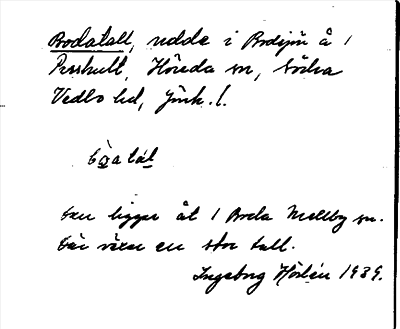 Bodatall, udde i Bodsjön å 1
Pershult, Höreda sn, Södra
Vedbo hd, Jönk. l.
Den ligger åt 1 Boda Mellby sn.
Där växer en stor tall.
Ingeborg Hörlin 1939.